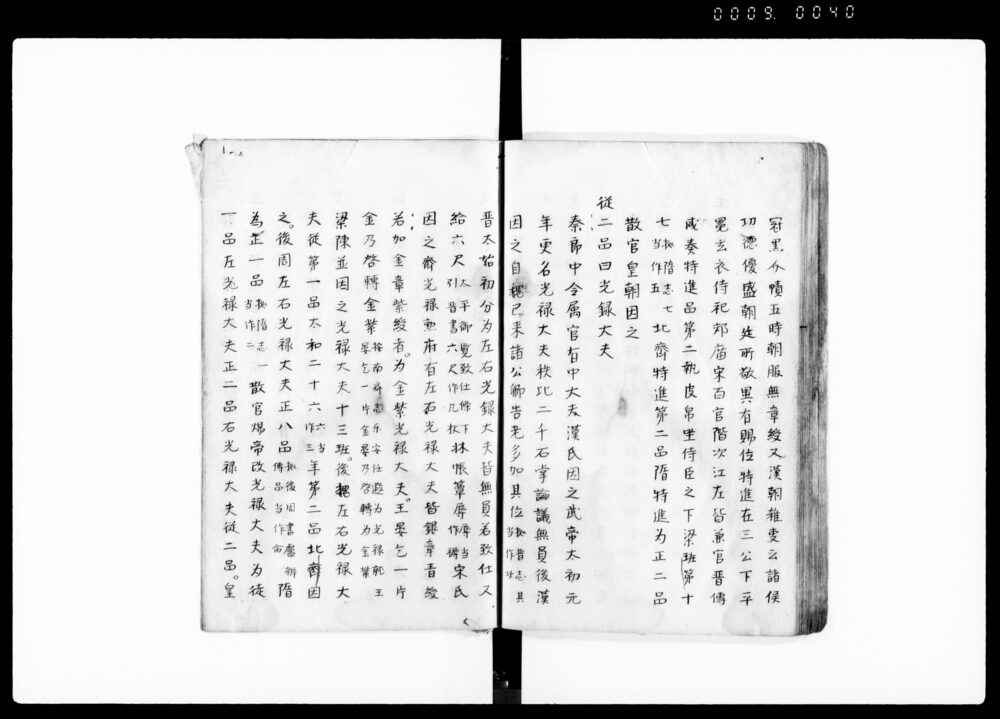 0009. 0040
冠黒介幘五時朝服無章綬又漢朝雜叓云諸侯
功德優盛朝廷所敬異者賜位特進在三公下平
冕玄衣侍祀郊庿宋百官階次江左皆兼官晋傳
咸奏特進品第二執皮帛坐侍臣之下梁班第十
七擬隋志七當作五北齊特進第二品隋特進为正二品
散官皇朝因之
從二品曰光録大夫
秦郎中令属官有中大夫漢氏因之武帝太初元
年更名光禄大夫秩比二千石掌論議無員後漢
因之自魏已来諸公卿告老多加具位擬晋志具當作此
晋太始初分为左右光録大夫皆無員若致仕又
給六尺太平御覽致仕條下引晋書六尺作几杖牀帳簟辱辱當作褥宋氏
因之齋光禄勲府有左右光禄大夫皆銀章青綬
若加金章紫綬者。为金紫光禄大夫。王晏乞一片
金乃啓轉金紫按南齊志乐安任遐为光禄就王晏乞一片金晏乃啓轉为金紫
梁陳並因之光禄大夫十三班。後魏左右光禄大
夫從第一品太和二十六六當作三年第二品北齊因
之。後周左右光禄大夫正八品擬後周書盧辯傳品當作命隋
为正一品擬隋志一當作二散官煬帝改光禄大夫为從
一品左光禄大夫正二品右光禄大夫從二品。皇